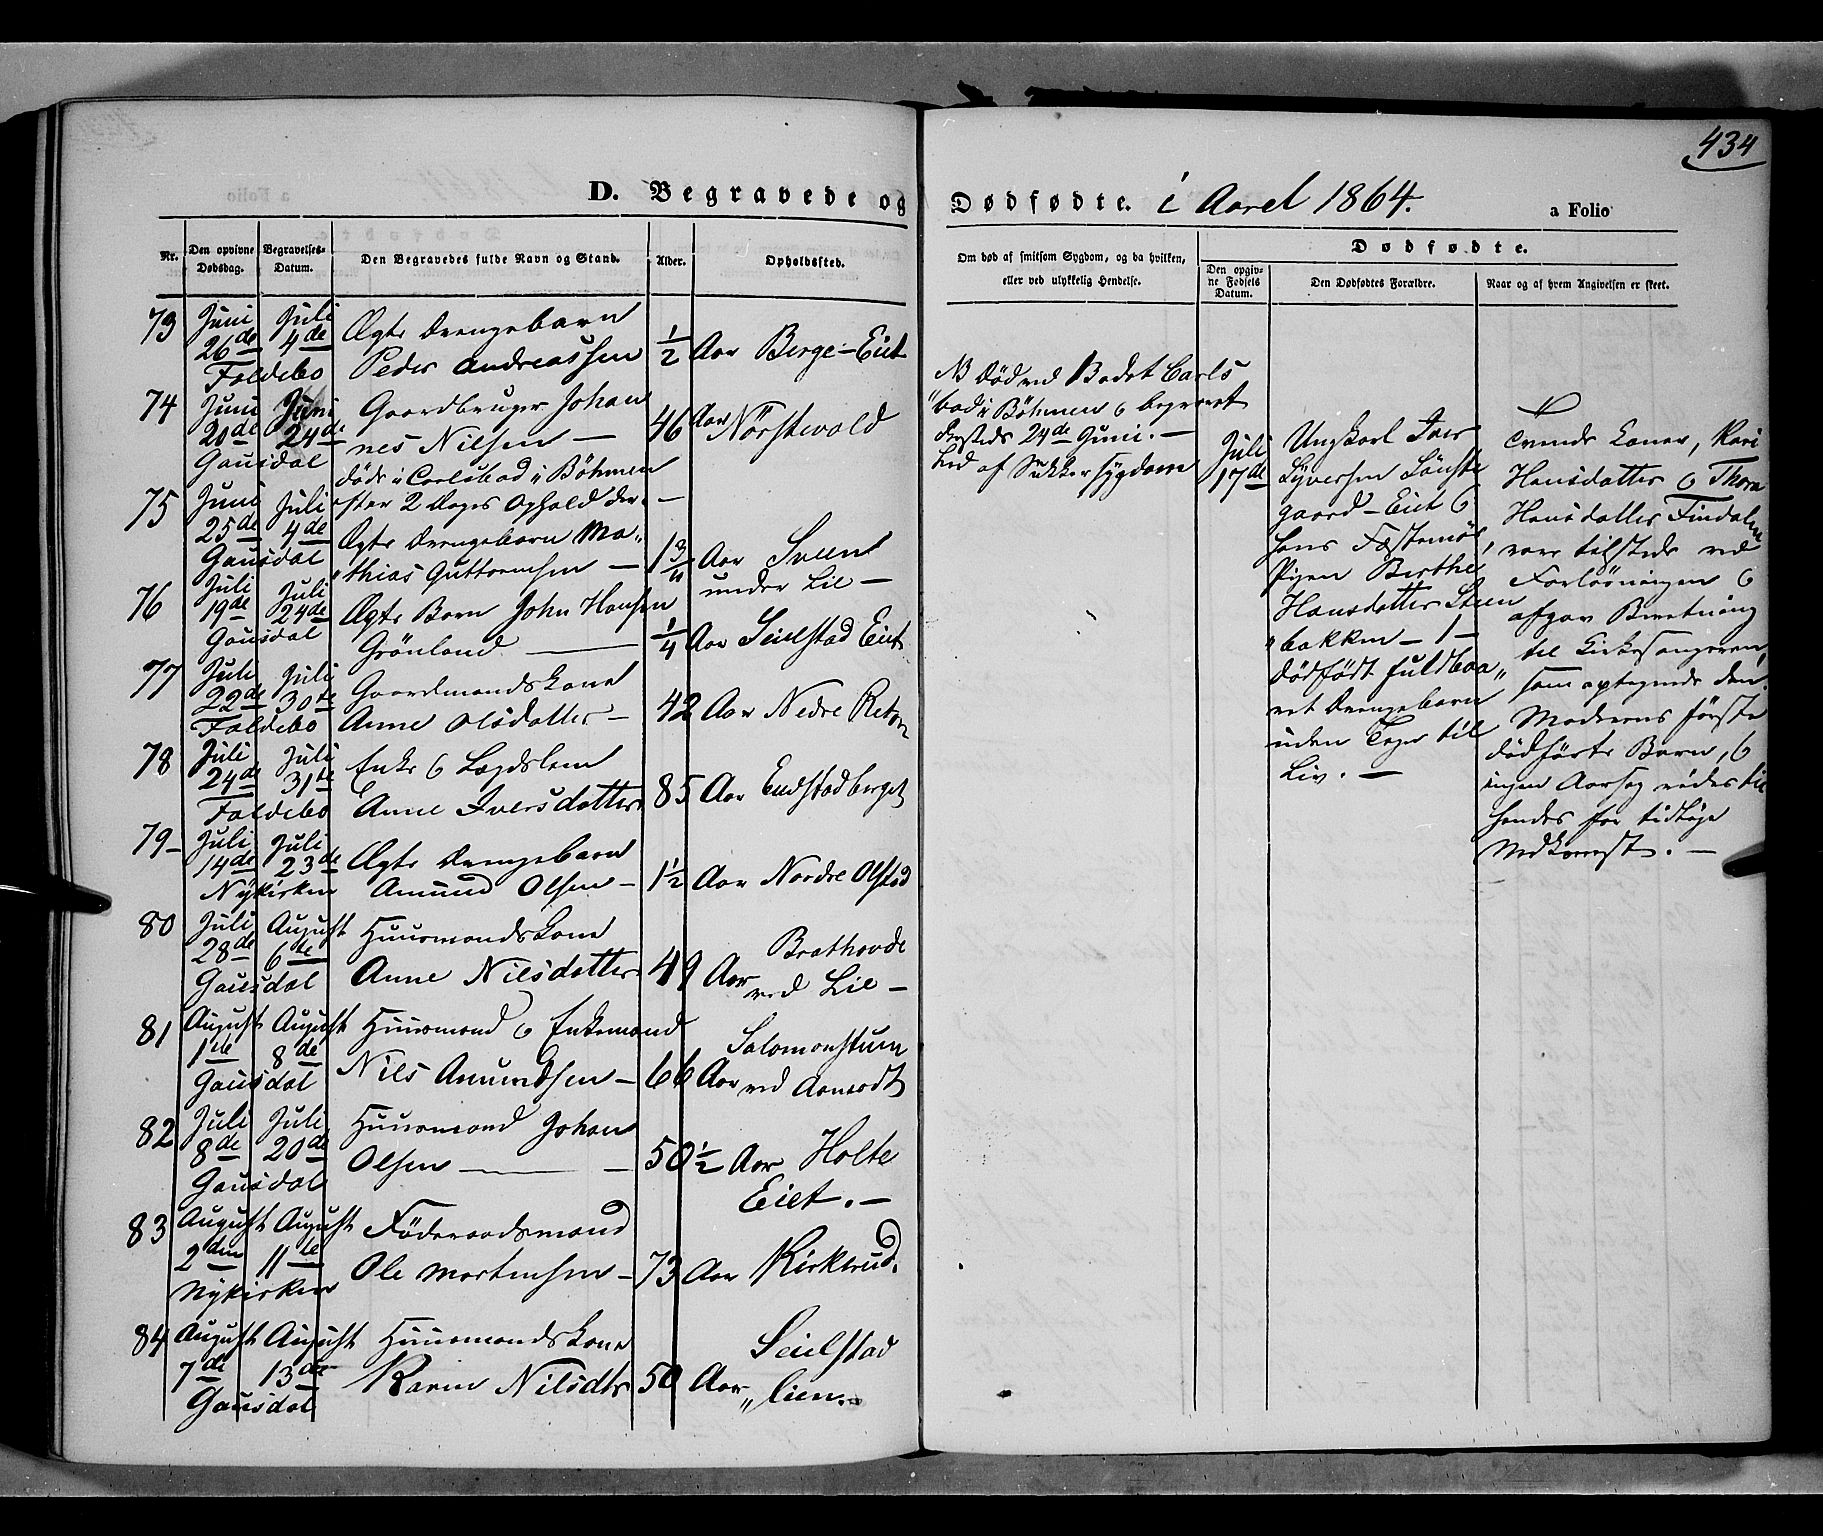 434
D. Begravede og Dødfødte. i Aaret 1864.
a Folio
Nr.
Den opgivne Dødsdag.
Begravelses-Datum.
Den Begravedes fulde Navn og Stand.
Alder.
Opholdssted.
Om død af smitsom Sygdom, og da hvilken,
eller ved ulykkelig Hendelse.
Dødfødte.
Den opgiv-
ne Fødsels
Datum.
Den Dødfødtes Forældre.
Naar og af hvem Angivelsen er skeet.
73 Juni 26de Juli 4de Foldebo
Ægte Drengebarn
Peder Andreassen 1/2 Aar Berge-Eiet
74 Juni 20de Juni 24de Gausdal
Gaardbruger Johan
nes Nilsen — 46 Aar Nörstevold
døde i Carlsbad i Böhmen
efter 2 Dages Ophold der. —
75 Juni 25de Juli 4de Gausdal
Ægte Drengebarn Ma„
„thias Guttormsen — 1 3/4 Aar Sveen
under Lie —
76 Juli 19de Juli 24de Gausdal
Ægte Barn John Hansen
Grönland — 1/4 Aar Seielstad Eiet
77 Juli 22de Juli 30te Foldebo
Gaardmandskone
Anne Olsdatter — 42 Aar Nedre
78 Juli 24de Juli 31te Foldebo
Enke & Lægdslem
Anne Iversdatter 85 Aar Endstadberget
79 — Juli 14de Juli 23de Nykirken
Ægte Drengebarn
Amund Olsen — 1 1/2 Aar Nordre Olstad
80 Juli 28de August 6te Gausdal
Huusmandskone
Anne Nilsdatter 49 Aar Brathovde
ved Lie —
81 August 1te August 8de Gausdal
Huusmand & Enkemand
Nils Amundsen — 66 Aar Salomonstuen
ved Aamodt
82 Juli 8de Juli 20de Gausdal
Huusmand Johan
Olsen — — 50 1/2 Aar Holte
Eiet. —
83 August 2den August 11te Nykirken
Föderaadsmand
Ole Mortensen — 73 Aar Kirkerud.
84 August 7de August 13de Gausdal
Huusmandskone
Karen Nilsdtr 50 Aar Seielstad
„lien.
NB Død ved Badet Carls
„bad i Böhmen & begravet
dersteds 24de Juni. —
Led af Sukkersygdom
Juli
17de
Ungkarl Iver
Syversen
gaard-Eiet &
hans Fæstemö,
Pigen Berthe
Hansdatter Steen
„bakken — 1 —
dödfödt fuldbaa„
ret Drengebarn
uden Tegn til
Liv. —
Tvende Koner, Kari
Hansdatter & Thora
Hansdatter Findalen
vare tilstede ved
Forlösningen &
afgav Beretning
til Kirkesangeren,
som optegnede den.
Moderens förste
dödfödte Barn, &
ingen Aarsag vides til
hendes for tidlige
Nedkomst. —